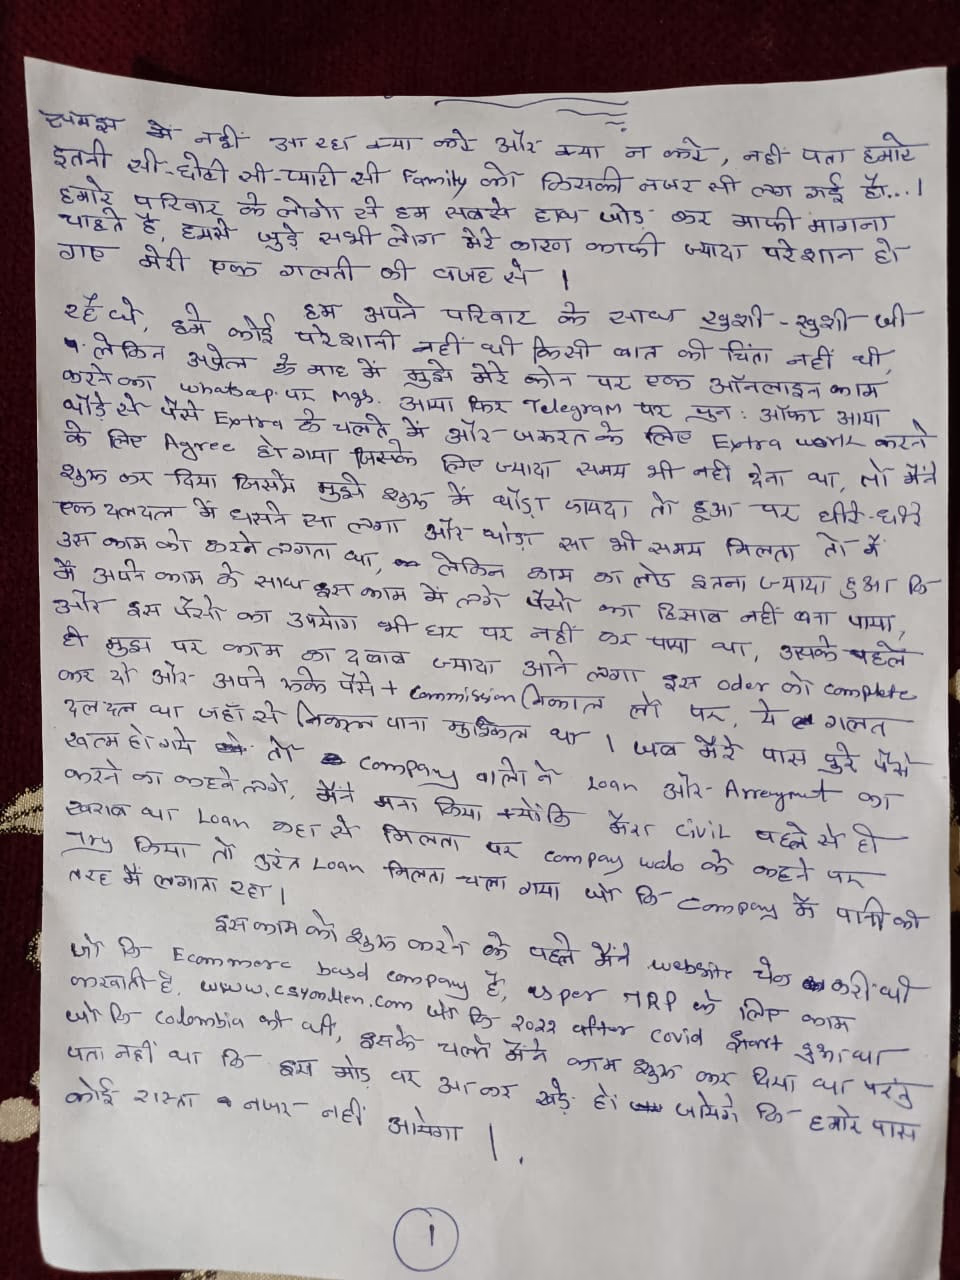 समझ में नहीं आ रहा क्या करे और क्या न करे, नहीं पता हमारे
इतनी सी-छोटी सी-प्यारी सी Family को किसकी नजर सी लग गई है...।
हमारे परिवार के लोगो से हम सबसे हाथ जोड़ कर माफी मांगना
चाहते है, हमसे जुड़े सभी लोग मेरे कारण काफी ज्यादा परेशान हो
गए मेरी एक गलती की वजह से।
हम अपने परिवार के साथ खुशी-खुशी जी
रहे थे, हमे कोई परेशानी नहीं थी किसी बात की चिंता नहीं थी,
लेकिन अप्रेल के माह में मुझे मेरे फोन पर एक ऑनलाइन काम
करने का whatsap पर Mgs. आया फिर Telegram पर पुन: ऑफर आया
थोड़े से पैसे Extra के चलते में और जरूरत के लिए Extra work करने
के लिए Agree हो गया जिसके लिए ज्यादा समय भी नही देना था, तो मैंने
शुरू कर दिया जिसमें मुझे शुरू में थोड़ा फायदा तो हुआ पर धीरे-धीरे
एक दलदल में धसने सा लगा और थोड़ा सा भी समय मिलता तो मैं
उस काम को करने लगता था, लेकिन काम का लोड इतना ज्यादा हुआ कि
मैं अपने काम के साथ इस काम में लगे पैसो का हिसाब नहीं बना पाया,
और इस पैसो का उपयोग भी घर पर नहीं कर पाया था, उसके पहले
ही मुझ पर काम का दबाव ज्यादा आने लगा इस oder को complete
कर दो और अपने रुके पैसे + commission निकाल लो पर, ये गलत
दलदल था जहाँ से निकल पाना मुश्किल था। जब मेरे पास पुरे पैसे
खत्म हो गये तो company वालो ने Loan और Arreyment का
करने का कहने लगे, मैंने मना किया क्योंकि मेरा civil पहले से ही
खराब था Loan कहा से मिलता पर compay walo के कहने पर
Try किया तो तुरंत Loan मिलता चला गया जो कि company में पानी की
तरह मैं लगाता रहा।
इस काम को शुरू करने के पहले मैंने website चेक करी थी
जो कि Ecommerc based company है, as per TRP के लिए काम
करवाती है, जो कि 2022 after covid start हुआ था
जो कि colombia की थी, इसके चलते मैंने काम शुरू कर दिया था परंतु
पता नहीं था कि इस मोड़ पर आ कर खड़े हो जायेगे कि हमारे पास
कोई रास्ता नजर नहीं आयेगा।
1